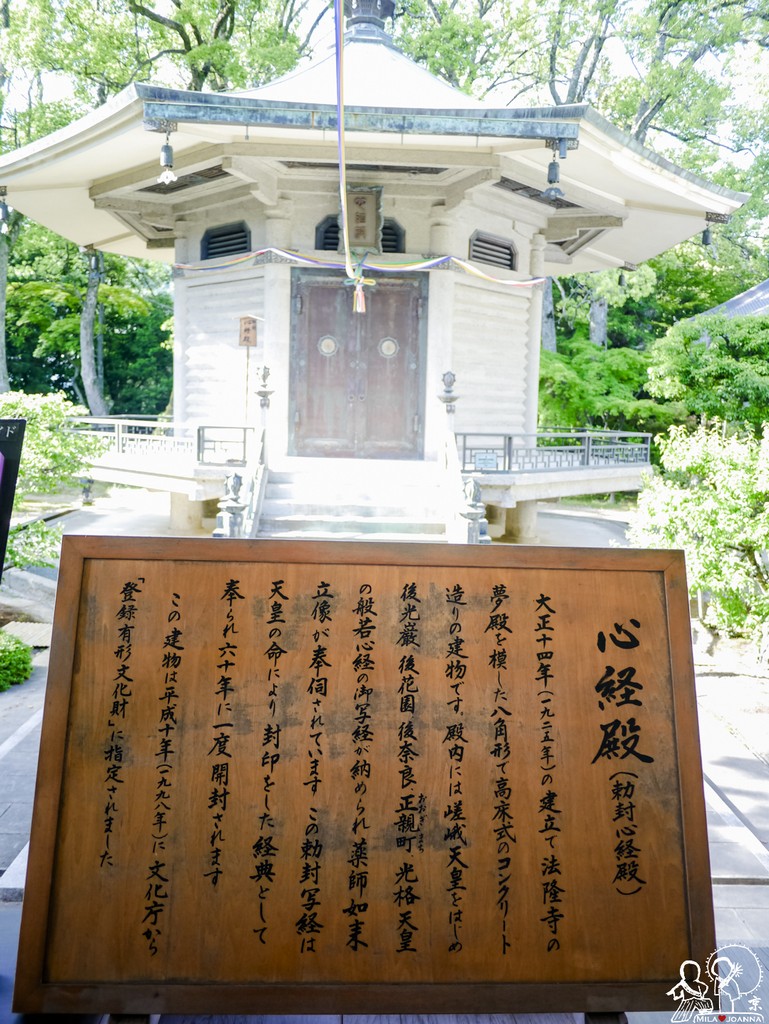 心経殿
心経殿(勅封心経殿)
大正十四年(一九二五年)の建立で法隆寺の
夢殿を模した八角形で高床式のコンクリート
造りの建物です。殿内には嵯峨天皇をはじめ
後光厳、後花園、後奈良、正親町、光格天皇
おおぎまち
の般若心経の御写経が納められ薬師如来
立像が奉伺されています この勅封写経は
天皇の命により封印をした経典として
奉られ六十年に一度開封されます
この建物は平成十年(一九九八年)に文化庁から
「登録有形文化財」に指定されました
京
MILA♥JOANNA